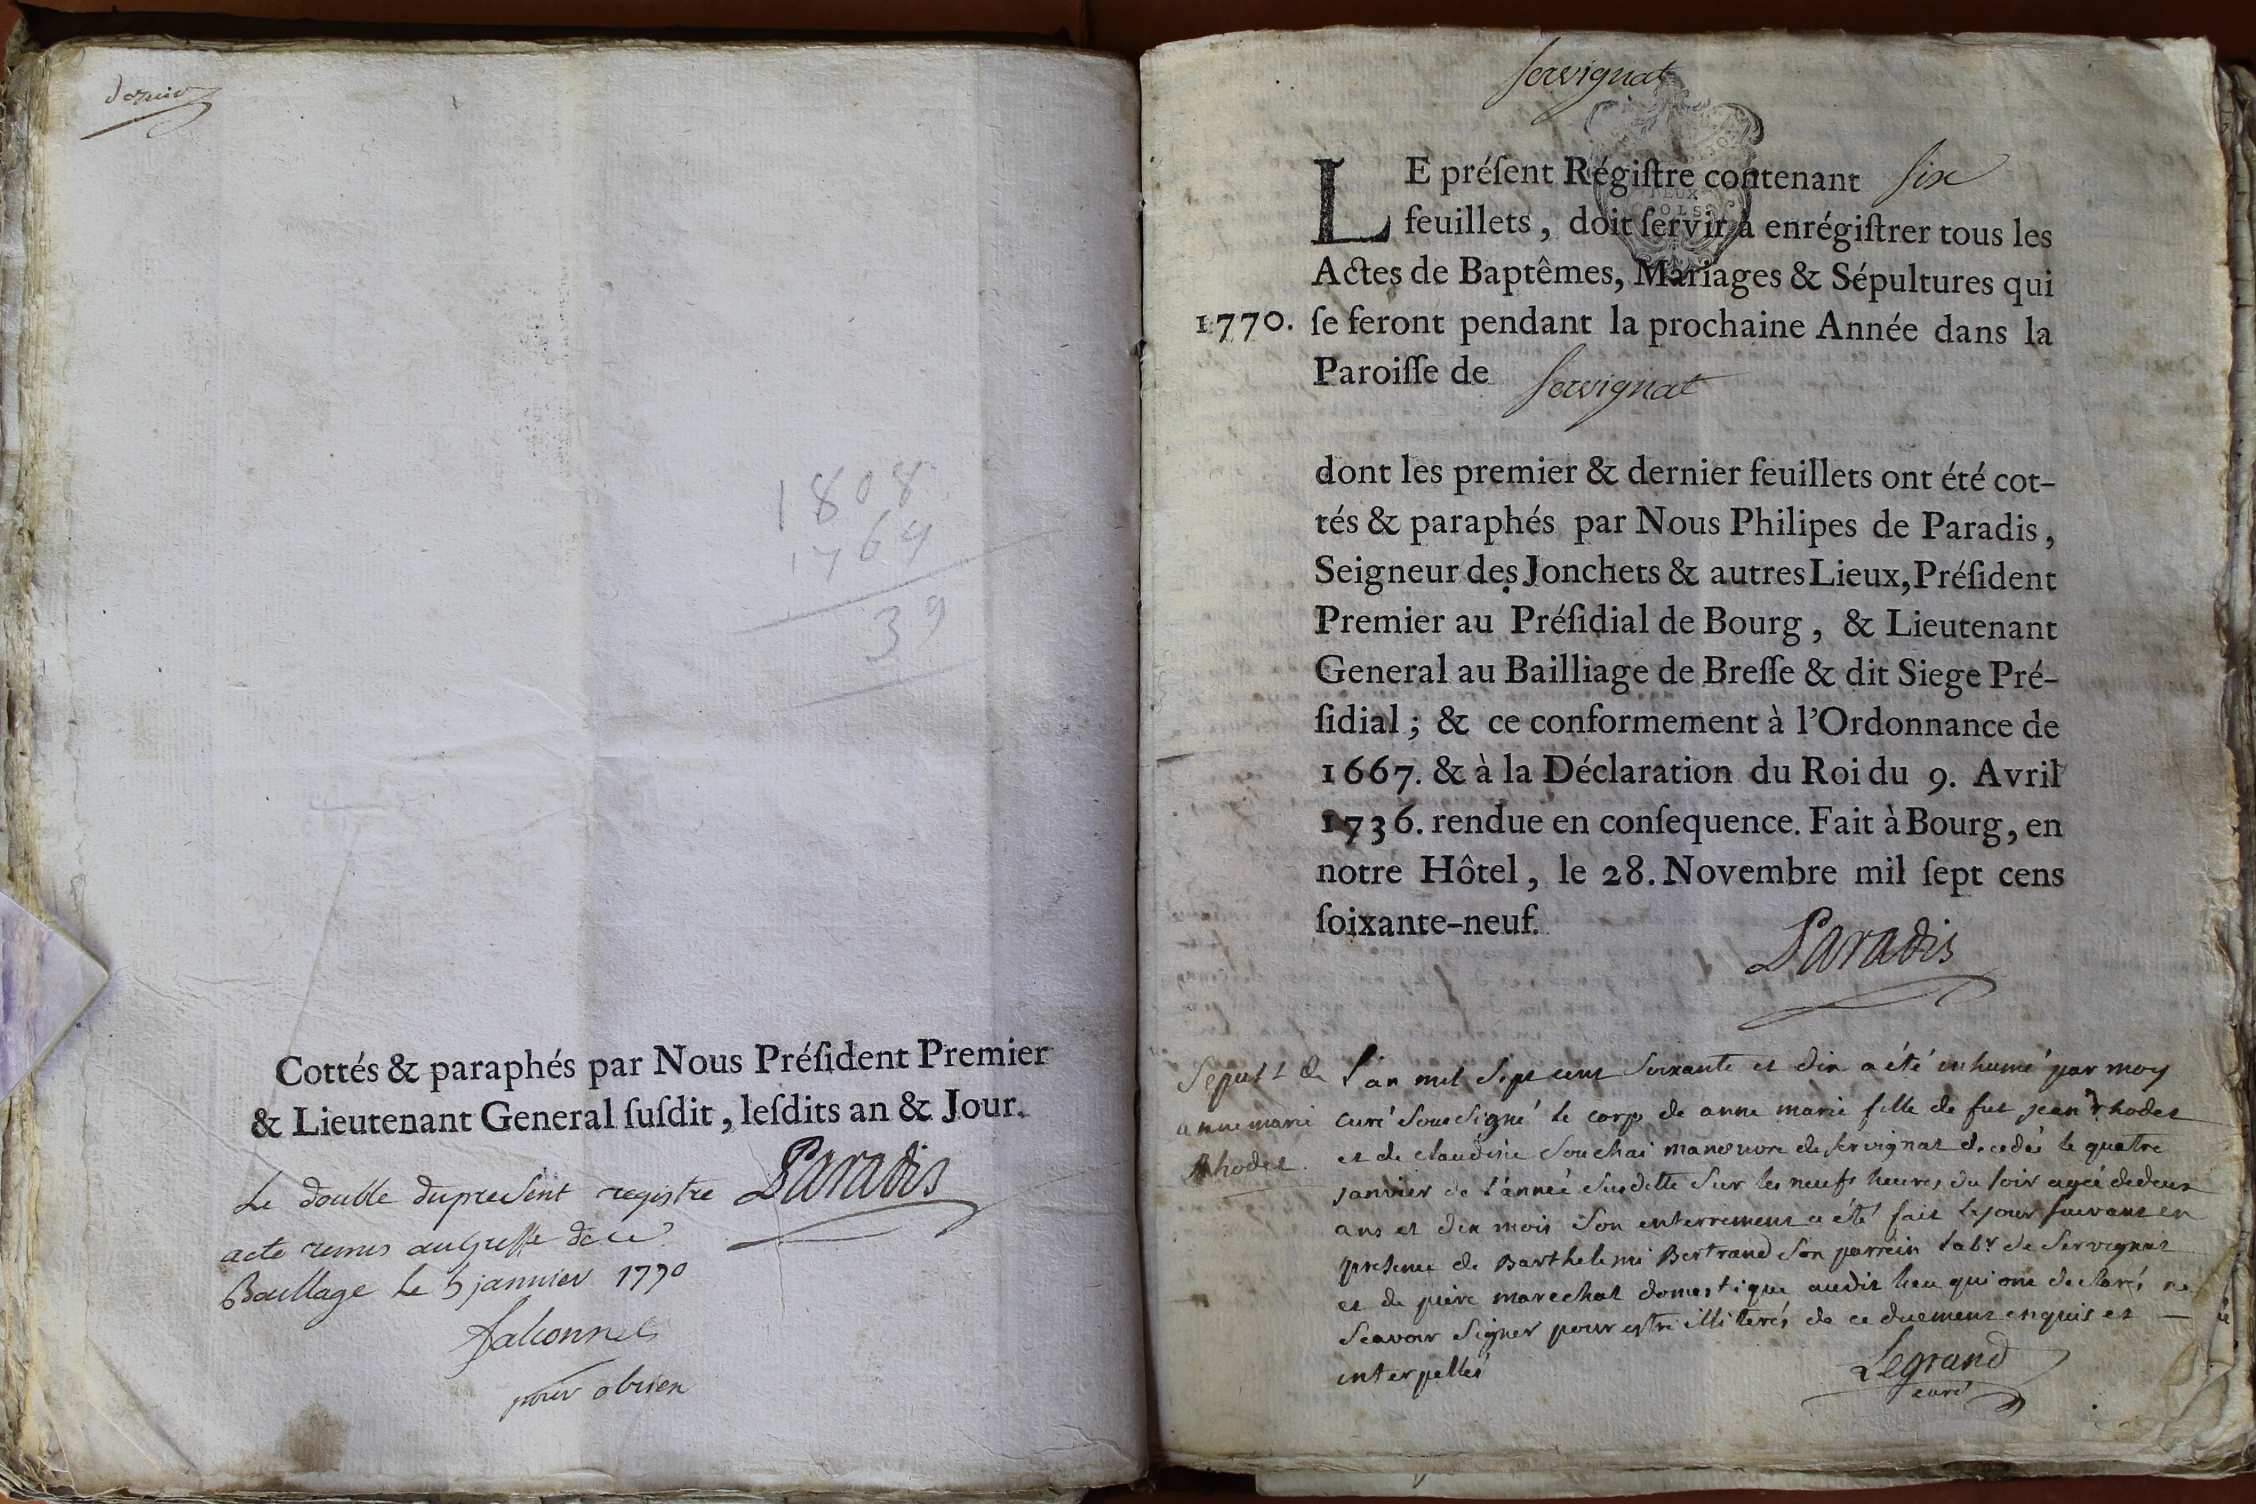 dernier
1808
1769
39
Cottés & paraphés par Nous Préſident Premier
& Lieutenant General ſuſdit, leſdits an & Jour.
Paradis
Le double du present registre
acte remis au greffe de ce
Baillage le 5 janvier 1770
falconnet
pour obrien
servignat
LE préſent Régiſtre contenant six
feuillets, doit ſervir à enrégiſtrer tous les
Actes de Baptêmes, Mariages & Sépultures qui
1770. ſe feront pendant la prochaine Année dans la
Paroiſſe de servignat
dont les premier & dernier feuillets ont été cot-
tés & paraphés par Nous Philipes de Paradis,
Seigneur des Jonchets & autres Lieux, Préſident
Premier au Préſidial de Bourg, & Lieutenant
General au Bailliage de Breſſe & dit Siege Pré-
ſidial; & ce conformement à l'Ordonnance de
1667. & à la Déclaration du Roi du 9. Avril
1736. rendue en conſequence. Fait à Bourg, en
notre Hôtel, le 28. Novembre mil ſept cens
ſoixante-neuf.
Paradis
Sepult de
anne marie
Rhodet
L'an mil sept cent soixante et dix a été inhumé par moy
curé soussigné le corps de anne marie fille de fut jean rhodet
et de claudine souchai manœuvre de servignat decedée le quatre
janvier de l'année susditte sur les neufs heures du soir agée de deux
ans et dix mois son enterrement a été fait le jour suivant en
presence de Barthelemi Bertrand son parrein labr de Servignat
et de piere marechat domestique audit lieu qui ont declarés ne
sçavoir signer pour estre illiterés de ce duement enquis et
interpellés
Legrand
curé